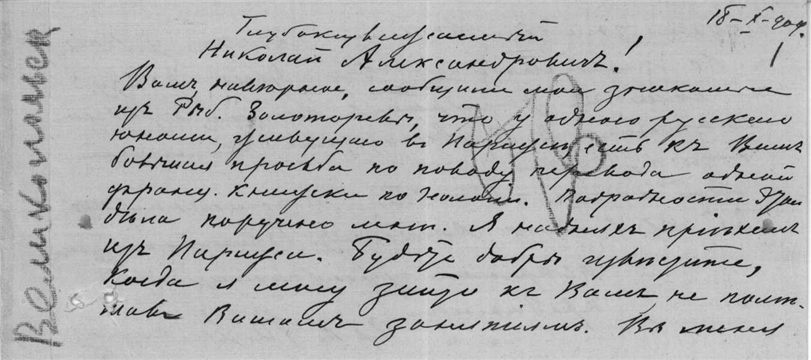 18-X-909.
Глубокоуважаемый
Николай Александровичъ!
Вамъ, наверное, сообщили мои знакомые
изъ Рыб. Золоторевы, что у одного русскаго
юноши, живущаго въ Парижѣ, есть къ Вамъ
большая просьба по поводу перевода одной
франц. книжки по
Подробности
дѣла поручено мнѣ. Я на дняхъ пріѣхалъ
изъ Парижа. Будьте добры извѣстите,
когда я могу зайти къ Вамъ, не помѣ-
шавъ Вашимъ занятіямъ. Въ
Великопольск